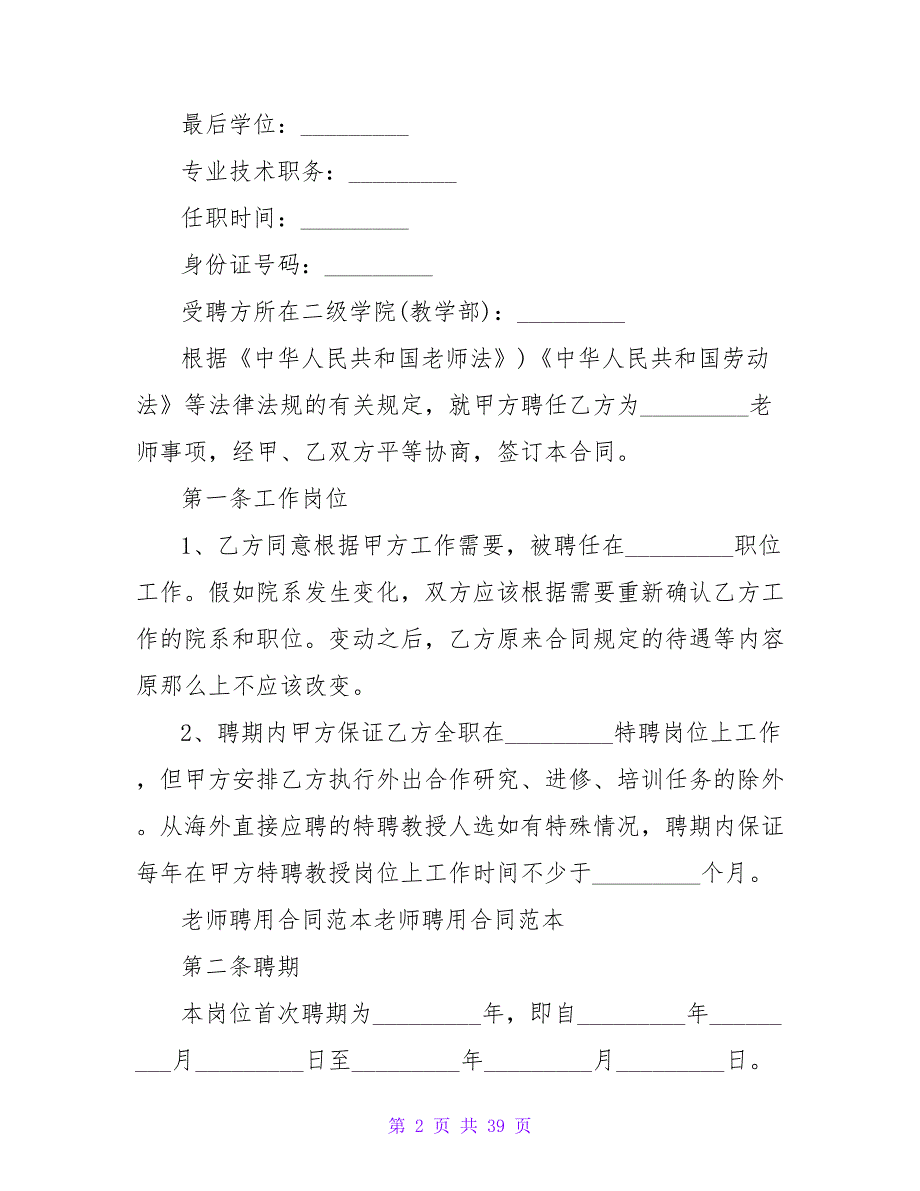 最后学位：_________
专业技术职务：_________
任职时间：_________
身份证号码：_________
受聘方所在二级学院(教学部)：_________
根据《中华人民共和国老师法》)《中华人民共和国劳动
法》等法律法规的有关规定，就甲方聘任乙方为_________老
师事项，经甲、乙双方平等协商，签订本合同。
第一条工作岗位
1、乙方同意根据甲方工作需要，被聘任在_________职位
工作。假如院系发生变化，双方应该根据需要重新确认乙方工
作的院系和职位。变动之后，乙方原来合同规定的待遇等内容
原那么上不应该改变。
2、聘期内甲方保证乙方全职在_________特聘岗位上工作
，但甲方安排乙方执行外出合作研究、进修、培训任务的除外
。从海外直接应聘的特聘教授人选如有特殊情况，聘期内保证
每年在甲方特聘教授岗位上工作时间不少于_________个月。
老师聘用合同范本老师聘用合同范本
第二条聘期
本岗位首次聘期为_________年，即自_________年______
___月_________日至_________年_________月_________日。
第 2 页 共 39 页